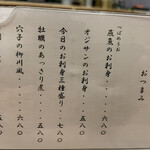 おつまみ
つばめうお
燕魚のお刺身・・・六八〇
オジサンのお刺身・・・六八〇
今日のお刺身三種盛り・・七八〇
牡蠣のあっさり煮・・・五八〇
穴子の柳川風・・・五八〇